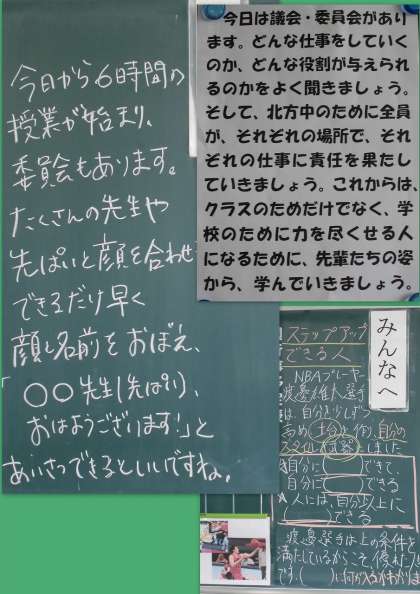 今日から6時間の
授業が始まり、
委員会もあります。
たくさんの先生や
先ぱいと顔を合わせ
できるだけ早く
顔と名前をおぼえ、
「〇〇先生(先ぱい)、
おはようございます!」と
あいさつできるといいですね。
今日は議会・委員会があり
ます。どんな仕事をしていく
のか、どんな役割が与えられ
るのかをよく聞きましょう。
そして、北方中のために全員
が、それぞれの場所で、それ
ぞれの仕事に責任を果たし
ていきましょう。これからは、
クラスのためだけでなく、学
校のために力を尽くせる人
になるために、先輩たちの姿
から、学んでいきましょう。
みんなへ
ステップアップ
できる人
NBAプレーヤー
渡邊雄太選手
は、自分を少しずつ
高め、土台を作り、自分の
スタイル(武器)
自分に( )できて、
自分に( )できる
人には、自分以上に
( )できる
渡邊選手は上の条件を
満たしているからこそ、優れた
です。( )に何が入るかわかりま